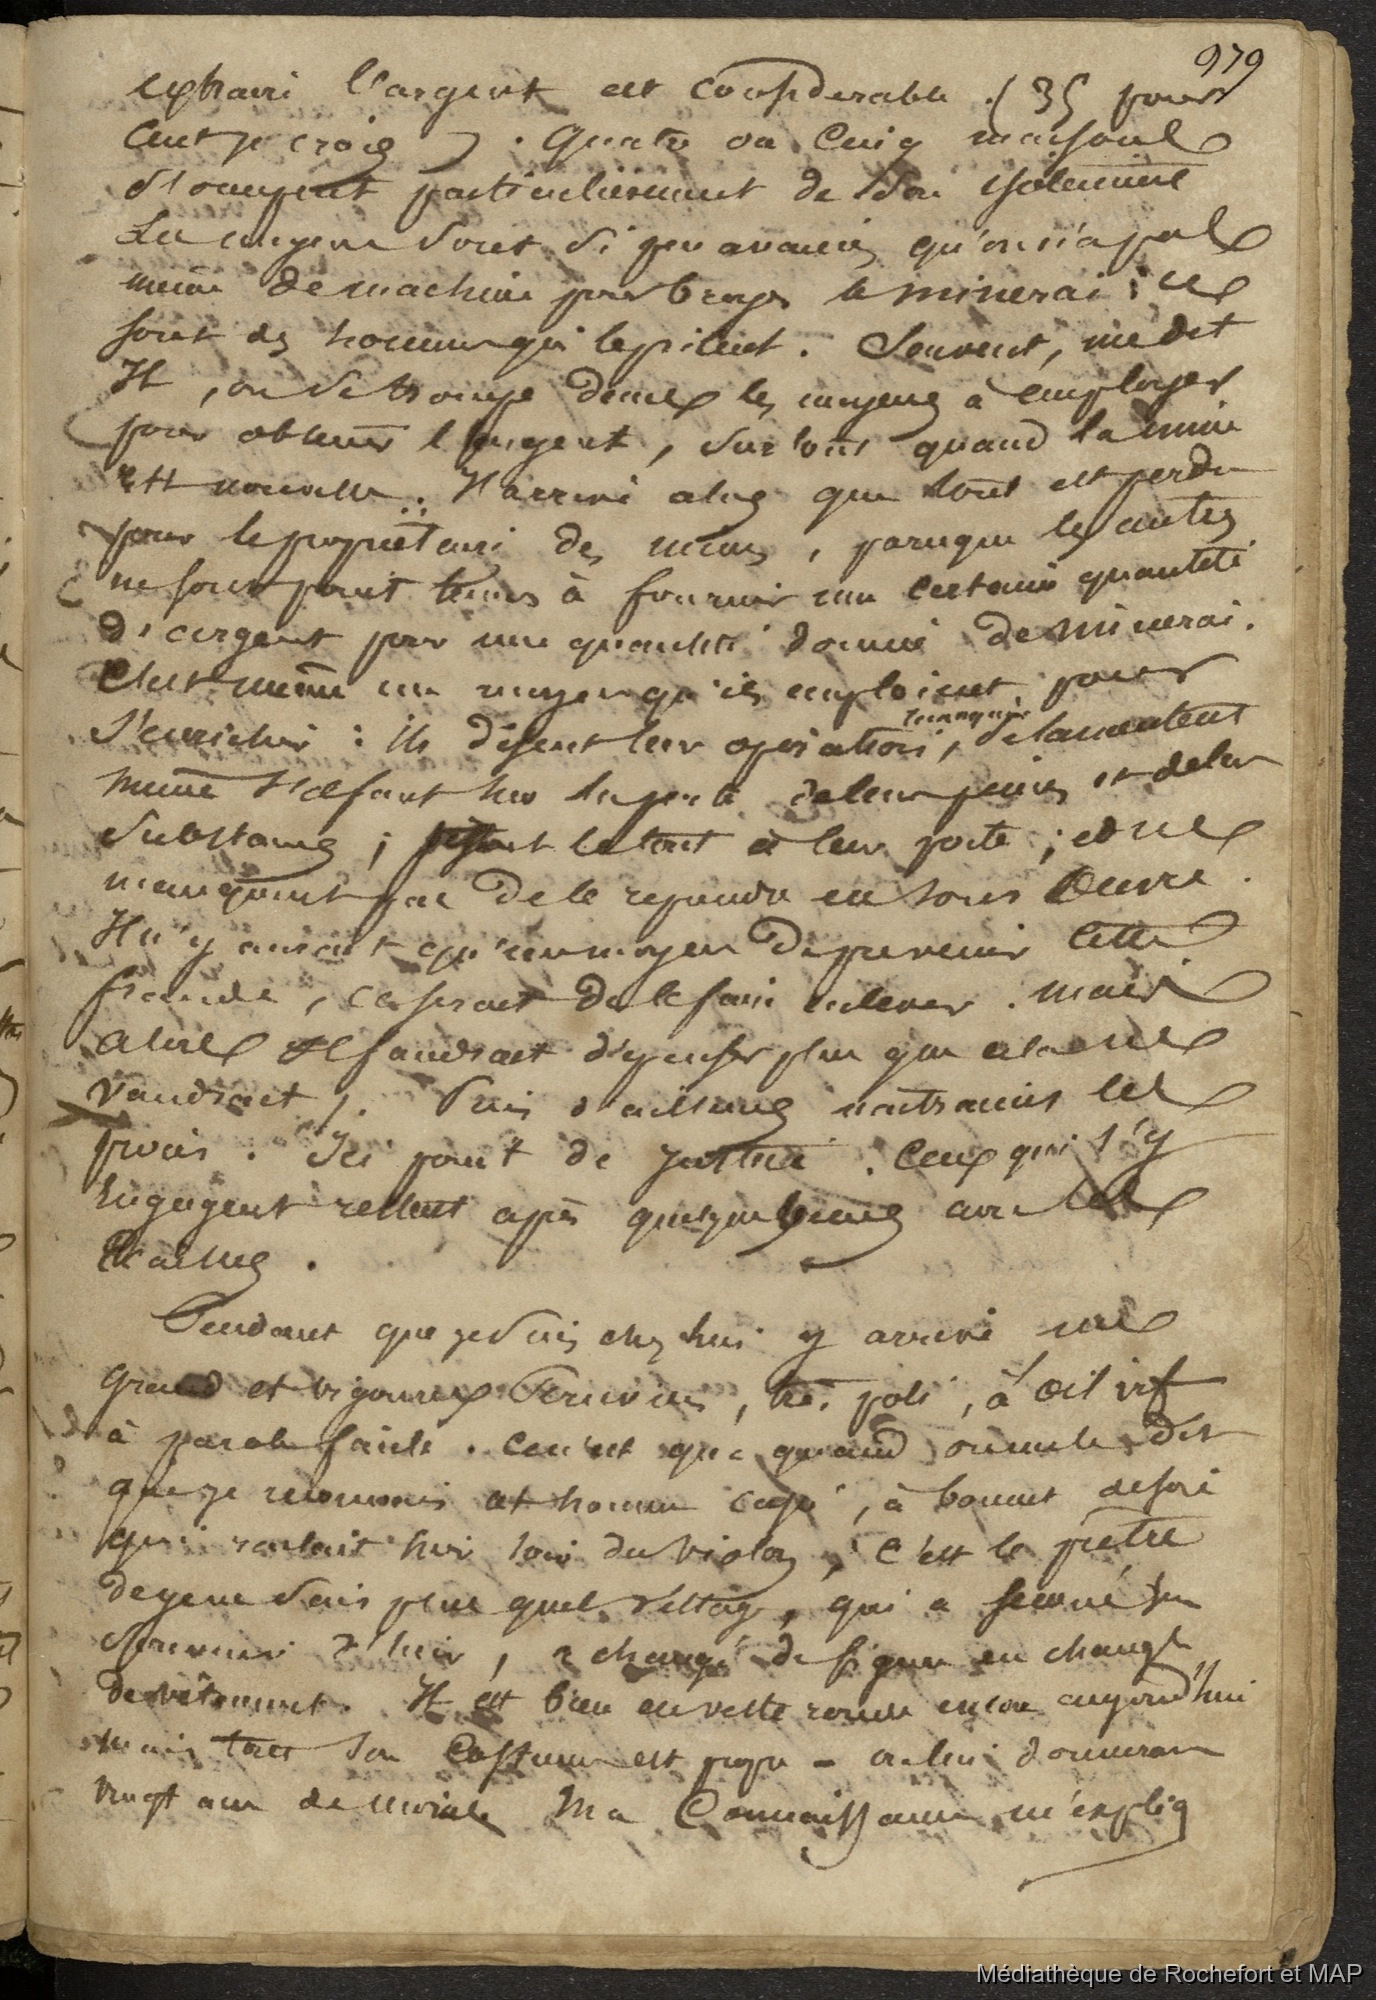 979
extraire l'argent est considerable. (35 pour
cent je crois). Quatre ou cinq maisons
s'occupent particulièrement de son
Les moyens sont si peu avancés qu'on n'a pas
même de machine pour broyer le minerai: ce
sont des hommes qui le pilent. Souvent, me dit
H, on se trompe dans les moyens à employer
pour obtenir l'argent, surtout quand la mine
est nouvelle. Il arrive alors que tout est perdu
pour le propriétaire des mines, parceque les autres
ne sont point tenus à fournir une certaine quantité
d'argent pour une quantité donnée de minerai.
C'est même un moyen qu'ils emploient pour
s'enrichir: ils disent leur opération manquée, se lamentent
même sur la perte de leur peine et de leur
substance; le tout à leur porte; et ne
manquent pas de le reprendre en sous œuvre.
Il n'y aurait qu'un moyen de prevenir cette
fraude, ce serait de le faire enlever. mais
alors il faudrait dépenser plus que cela ne
vaudrait). Puis d'ailleurs les
frais. Ici point de justice. Ceux qui s'y
engagent restent après quelque temps avec les
chaines.
Pendant que je suis chez lui y arrive un
grand et vigoureux Peruvien, très poli, à œil vif
à parole facile. Ce n'est que quand on me le dit
que je reconnais cet homme à bonnet de soie
qui raclait hier soir du violon, c'est le prêtre
de je ne sais plus quel village, qui a
hier, a changé de figure en changt
de vêtement. Il est bien en veste ronde encore aujourd'hui
mais tout son costume est propre - on lui donnerait
vingt ans de moins Ma Connaissance m'expliq
Médiathèque de Rochefort et MAP